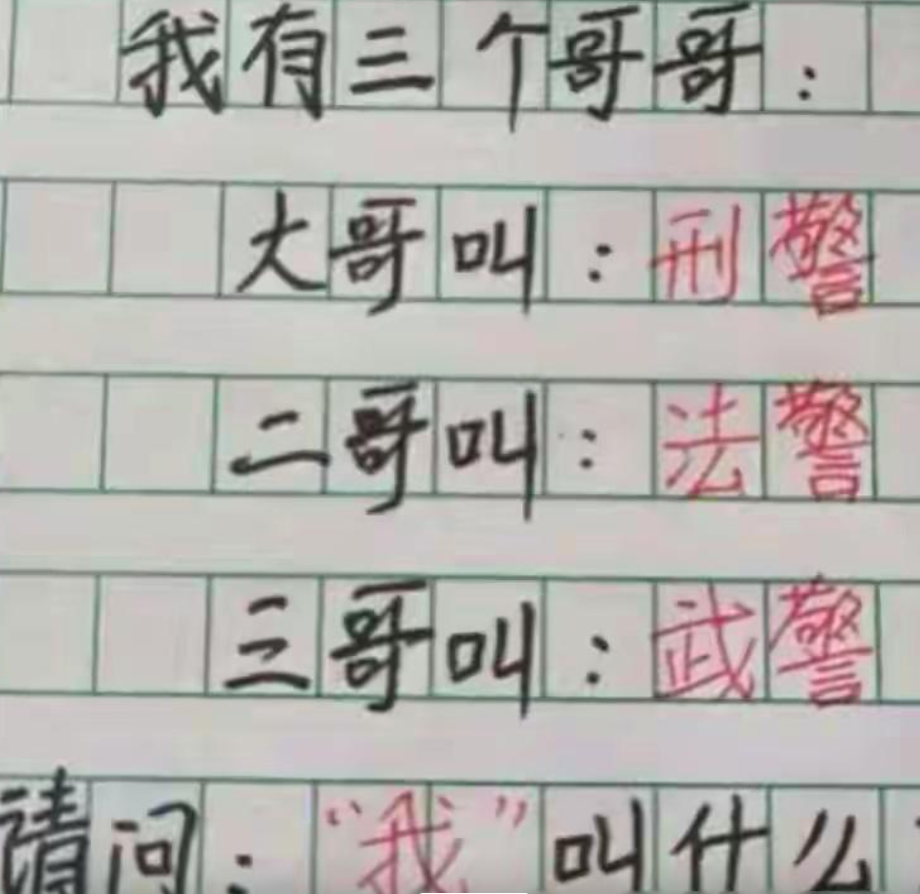 我有三个哥哥：
大哥叫：刑警
二哥叫：法警
三哥叫：武警
请问：“我”叫什么